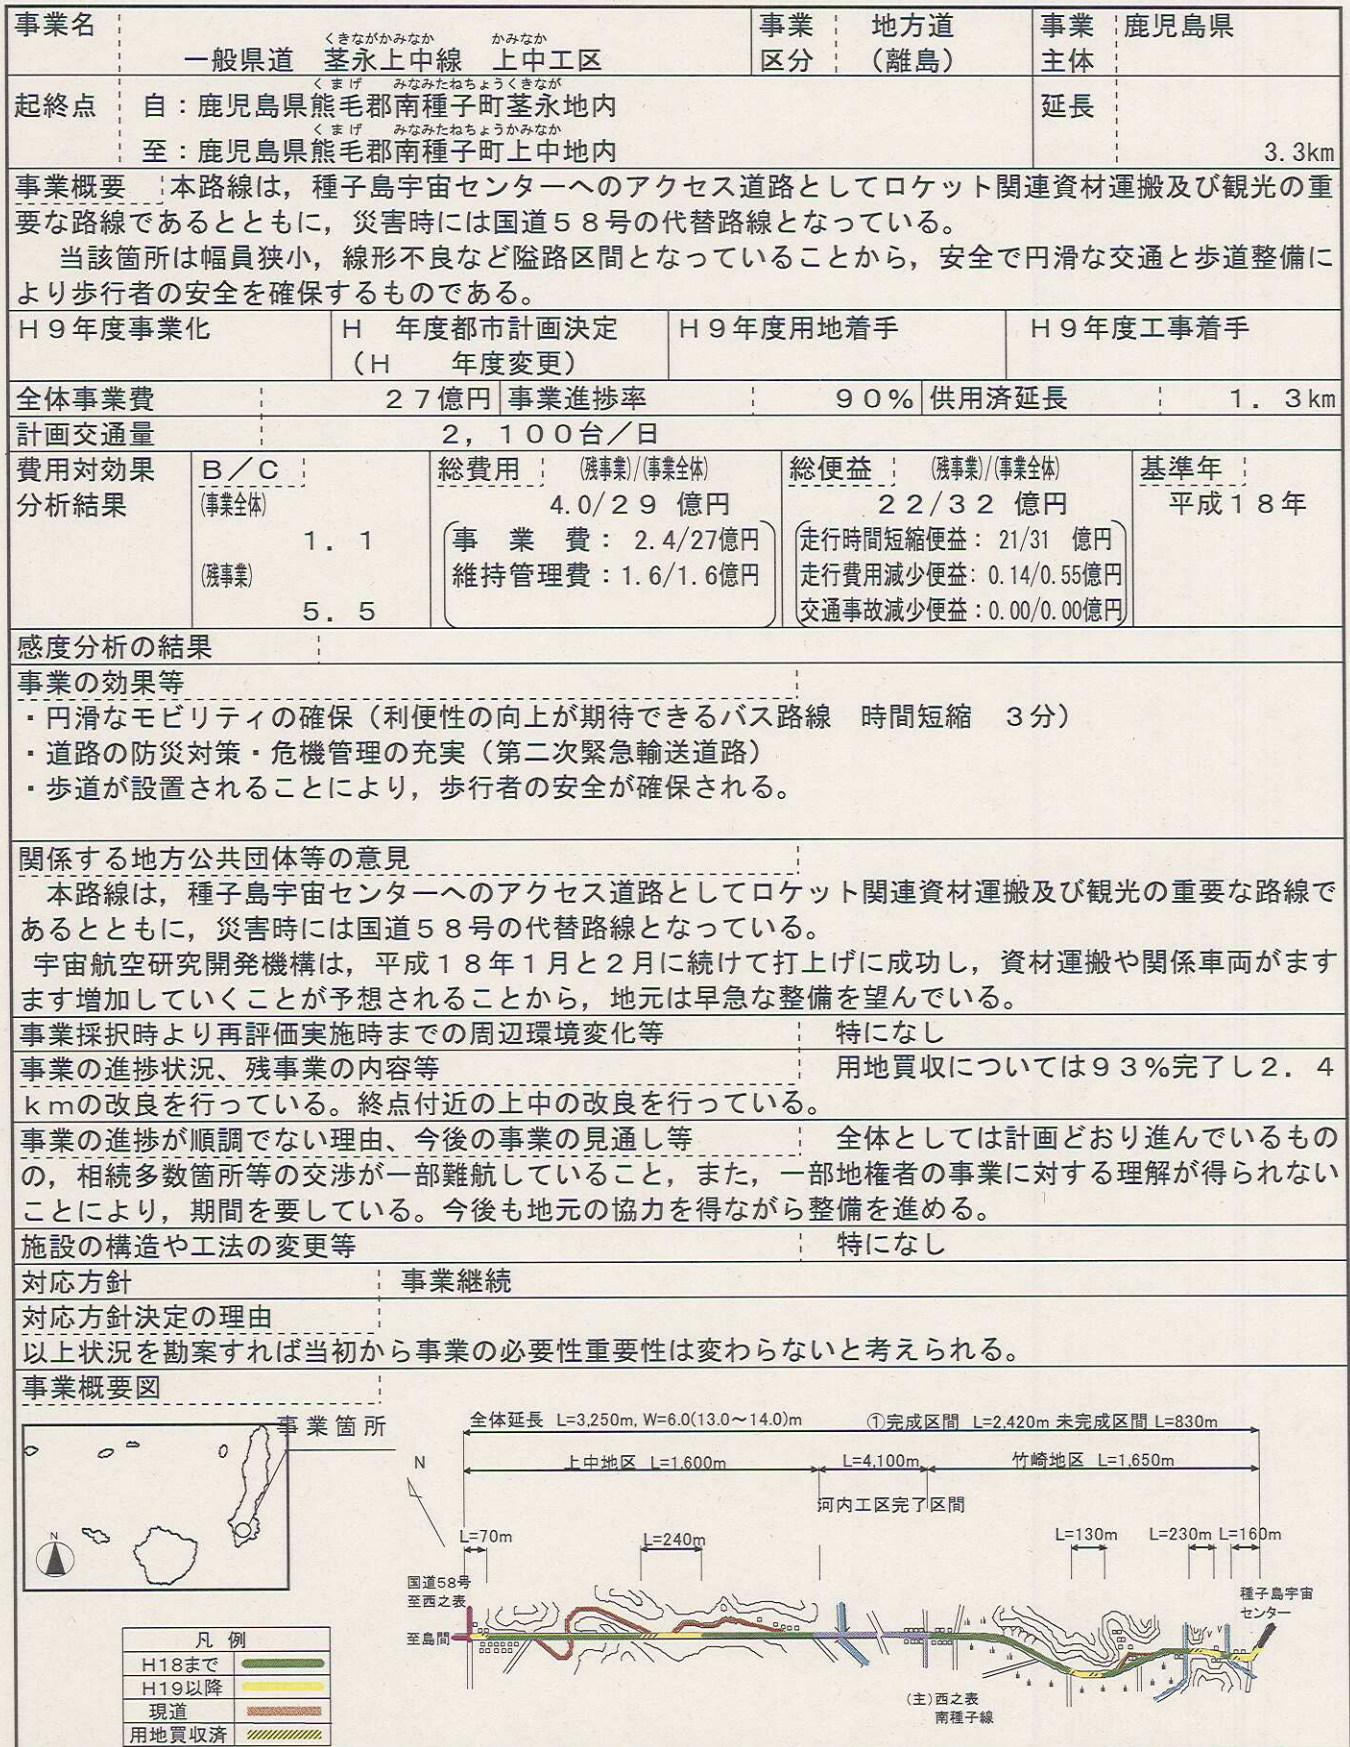 事業名
くきながかみなか　かみなか
一般県道　茎永上中線　上中工区
事業区分
地方道（離島）
事業主体
鹿児島県
起終点
くまげ　みなみたねちょうくきなが
自：鹿児島県熊毛郡南種子町茎永地内
くまげ　みなみたねちょうかみなか
至：鹿児島県熊毛郡南種子町上中地内
延長
3.3km
事業概要　本路線は，種子島宇宙センターへのアクセス道路としてロケット関連資材運搬及び観光の重
要な路線であるとともに，災害時には国道５８号の代替路線となっている。
当該箇所は幅員狭小，線形不良など隘路区間となっていることから，安全で円滑な交通と歩道整備に
より歩行者の安全を確保するものである。
Ｈ９年度事業化
Ｈ　年度都市計画決定
（Ｈ　　年度変更）
Ｈ９年度用地着手
Ｈ９年度工事着手
全体事業費　２７億円
事業進捗率　９０％
供用済延長　１．３km
計画交通量　２，１００台／日
費用対効果
分析結果
Ｂ／Ｃ
(事業全体)
１．１
(残事業)
５．５
総費用　(残事業)/(事業全体)
4.0/２９ 億円
事　業　費： 2.4/27億円
維持管理費：1.6/1.6億円
総便益　(残事業)/(事業全体)
２２/３２ 億円
走行時間短縮便益： 21/31　億円
走行費用減少便益：0.14/0.55億円
交通事故減少便益：0.00/0.00億円
基準年
平成１８年
感度分析の結果
事業の効果等
・円滑なモビリティの確保（利便性の向上が期待できるバス路線　時間短縮　３分）
・道路の防災対策・危機管理の充実（第二次緊急輸送道路）
・歩道が設置されることにより，歩行者の安全が確保される。
関係する地方公共団体等の意見
本路線は，種子島宇宙センターへのアクセス道路としてロケット関連資材運搬及び観光の重要な路線で
あるとともに，災害時には国道５８号の代替路線となっている。
宇宙航空研究開発機構は，平成１８年１月と２月に続けて打上げに成功し，資材運搬や関係車両がます
ます増加していくことが予想されることから，地元は早急な整備を望んでいる。
事業採択時より再評価実施時までの周辺環境変化等　特になし
事業の進捗状況、残事業の内容等　用地買収については９３％完了し２．４
ｋｍの改良を行っている。終点付近の上中の改良を行っている。
事業の進捗が順調でない理由、今後の事業の見通し等　全体としては計画どおり進んでいるもの
の，相続多数箇所等の交渉が一部難航していること，また，一部地権者の事業に対する理解が得られない
ことにより，期間を要している。今後も地元の協力を得ながら整備を進める。
施設の構造や工法の変更等　特になし
対応方針　事業継続
対応方針決定の理由
以上状況を勘案すれば当初から事業の必要性重要性は変わらないと考えられる。
事業概要図
事業箇所
N
全体延長　L=3,250m, W=6.0(13.0～14.0)m　①完成区間　L=2,420m 未完成区間 L=830m
N
上中地区　L=1,600m
L=4,100m
竹崎地区　L=1,650m
河内工区完了区間
L=70m
L=240m
L=130m
L=230m
L=160m
国道58号
至西之表
至島間
種子島宇宙
センター
(主)西之表
南種子線
凡　例
H18まで
H19以降
現道
用地買収済